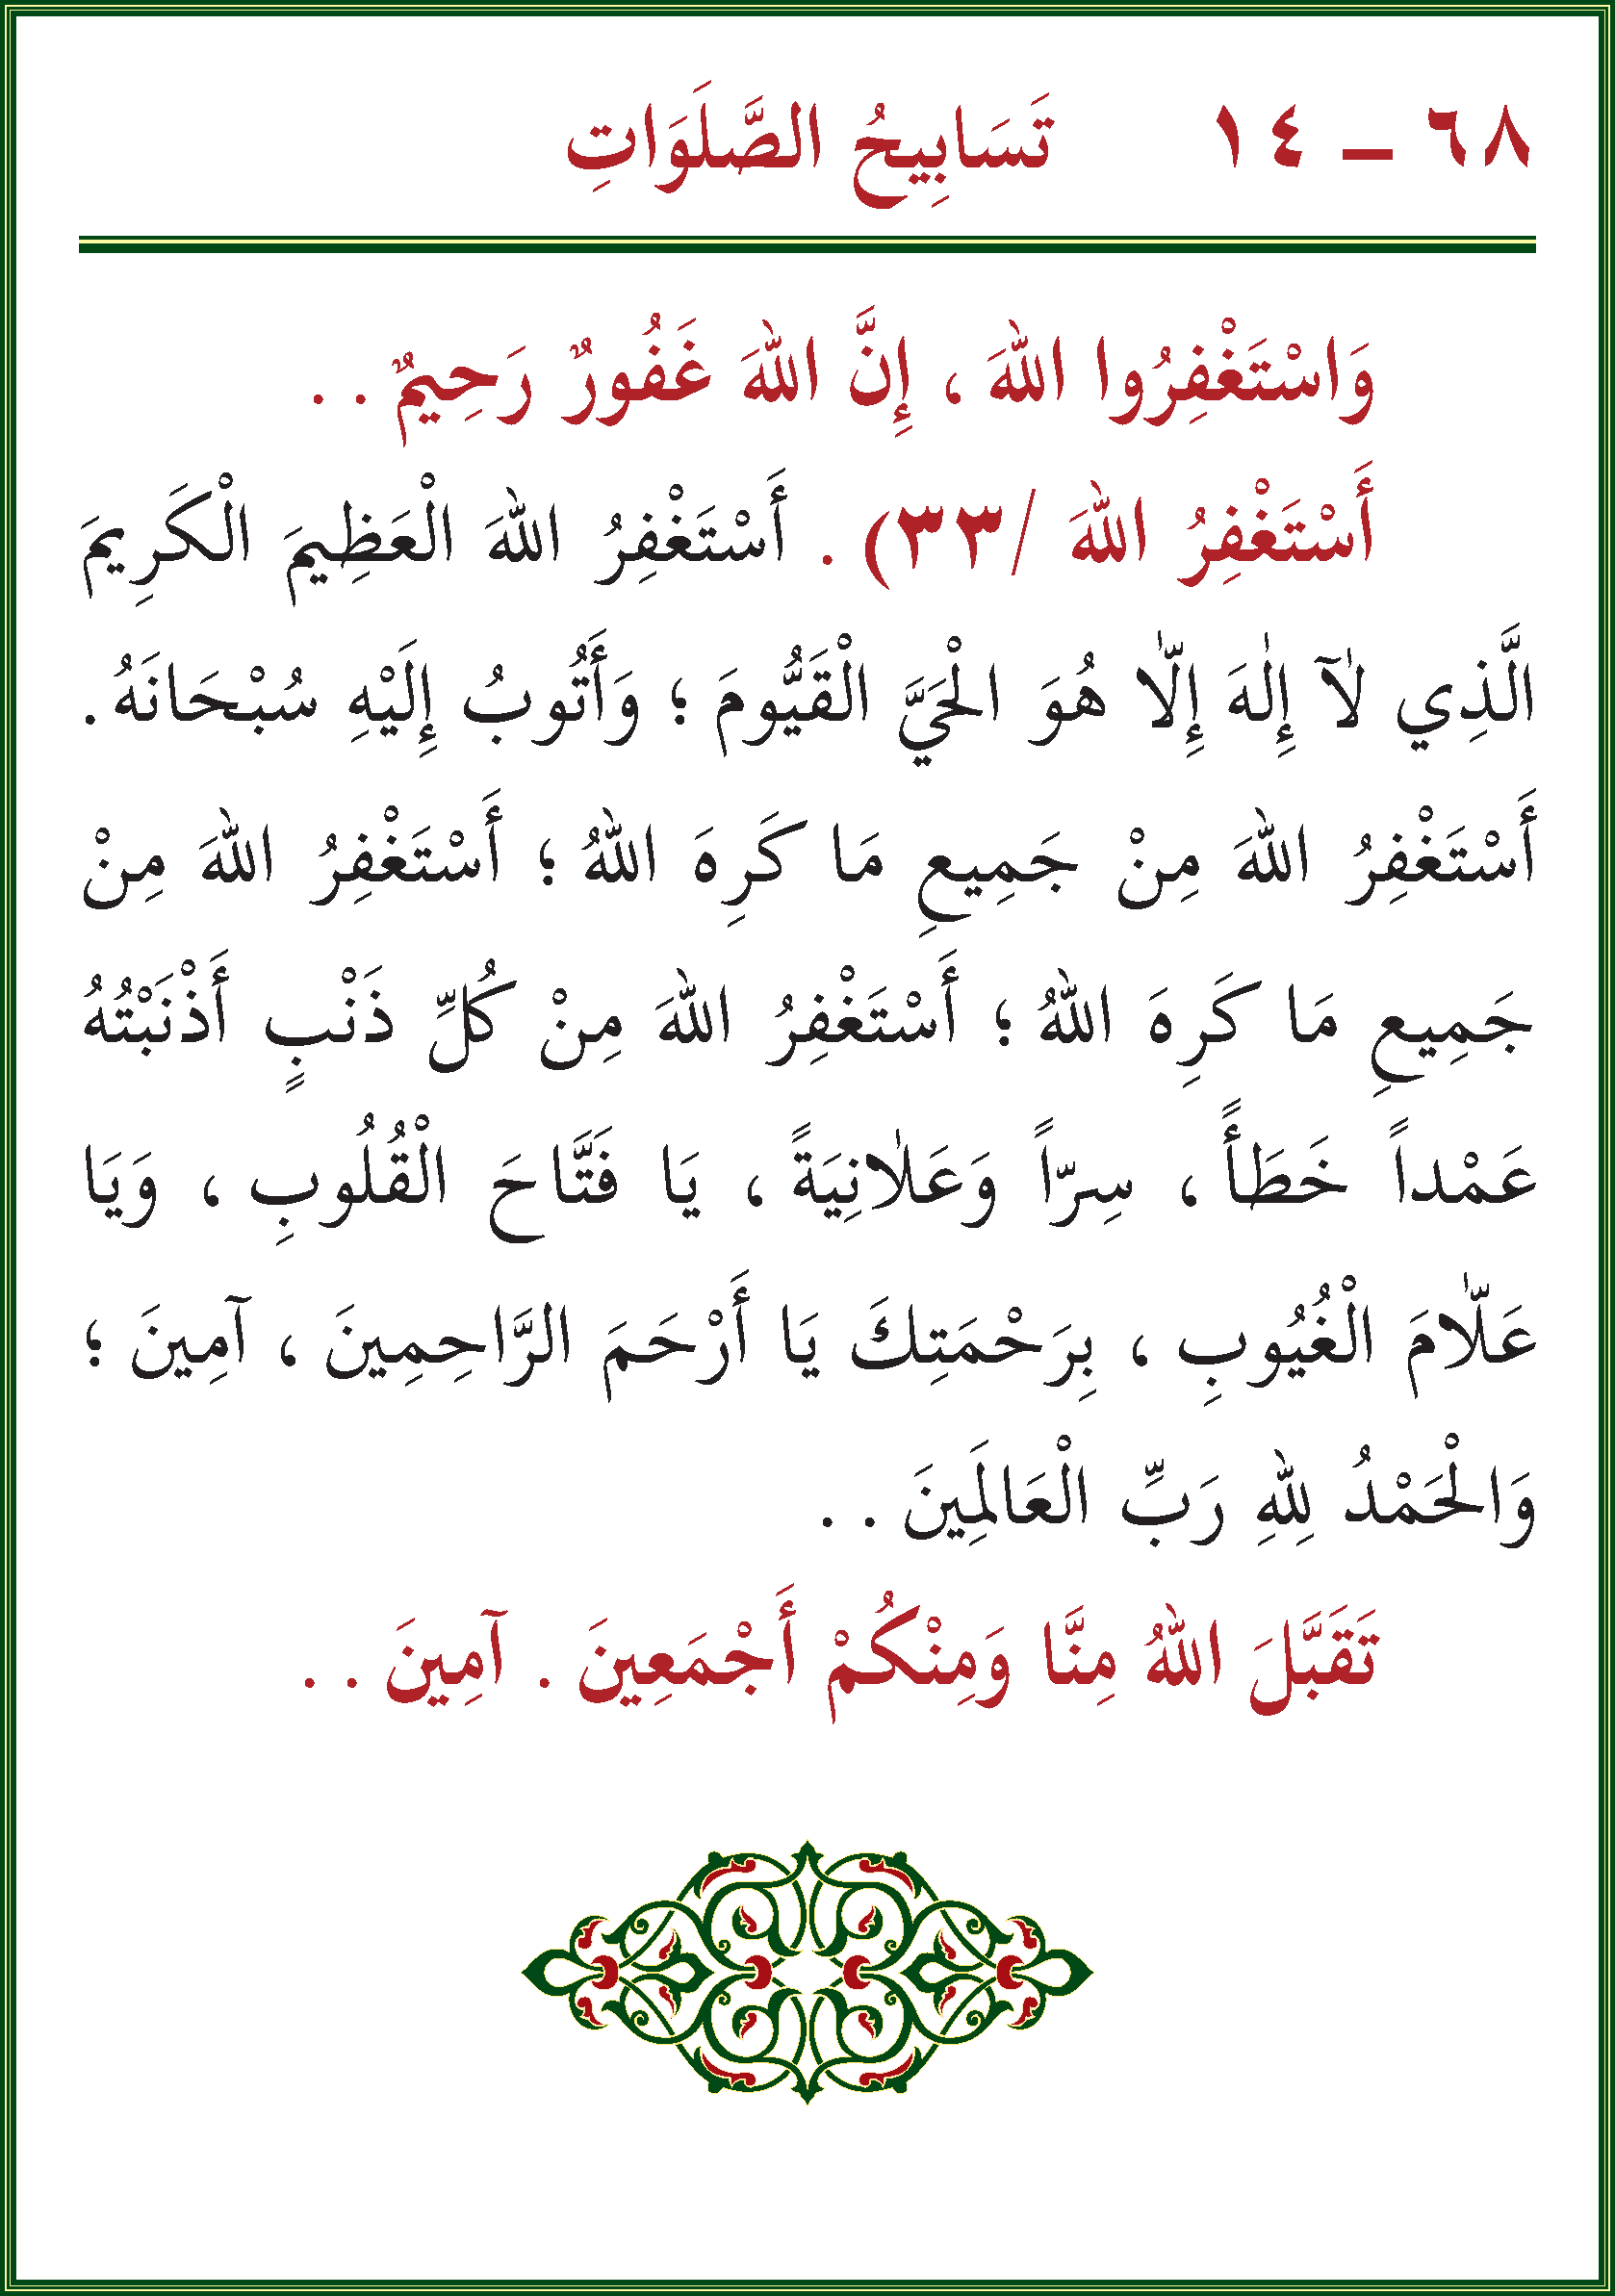 ٦٨ ــ ١٤ تَسَابِيحُ الصَّلَوَاتِ
وَاسْتَغْفِرُوا اللهَ ، إِنَّ اللهَ غَفُورٌ رَحِيمٌ . .
أَسْتَغْفِرُ اللهَ /٣٣) . أَسْتَغْفِرُ اللهَ الْعَظِيمَ الْكَرِيمَ
الَّذِي لَآ إِلٰهَ إِلّٰا هُوَ الْحَيَّ الْقَيُّومَ ؛ وَأَتُوبُ إِلَيْهِ سُبْحَانَهُ .
أَسْتَغْفِرُ اللهَ مِنْ جَمِيعِ مَا كَرِهَ اللهُ ؛ أَسْتَغْفِرُ اللهَ مِنْ
جَمِيعِ مَا كَرِهَ اللهُ ؛ أَسْتَغْفِرُ اللهَ مِنْ كُلِّ ذَنْبٍ أَذْنَبْتُهُ
عَمْداً خَطَأً ، سِرّاً وَعَلٰانِيَةً ، يَا فَتَّاحَ الْقُلُوبِ ، وَيَا
عَلّٰامَ الْغُيُوبِ ، بِرَحْمَتِكَ يَا أَرْحَمَ الرَّاحِمِينَ ، آمِينَ ؛
وَالْحَمْدُ لِلهِ رَبِّ الْعَالَمِينَ . .
تَقَبَّلَ اللهُ مِنَّا وَمِنْكُمْ أَجْمَعِينَ . آمِينَ . .